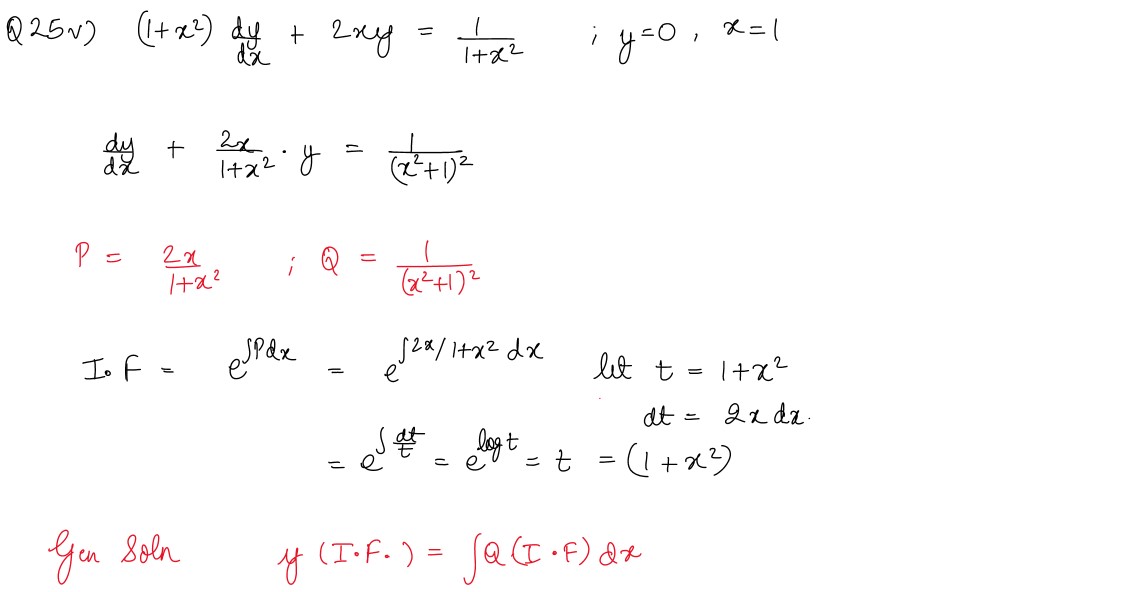 Q25v) (1+x²) dy/dx + 2xy = 1/(1+x²) ; y=0 , x=1
dy/dx + 2x/(1+x²) · y = 1/(x²+1)²
P = 2x/(1+x²) ; Q = 1/(x²+1)²
I.F = e^∫Pdx = e^∫2x/1+x² dx let t = 1+x²
dt = 2x dx.
= e^∫dt/t = e^log t = t = (1+x²)
Gen Soln y (I.F.) = ∫Q(I.F) dx